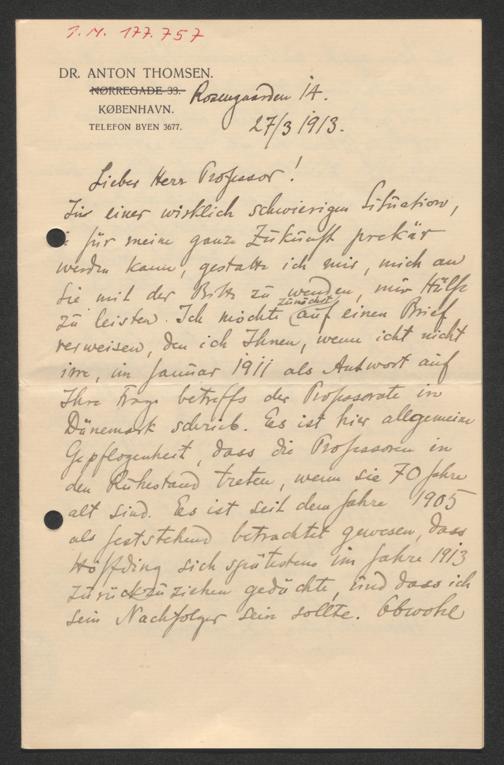 I.N. 177.757
DR. ANTON THOMSEN.
NØRREGADE 33.
Rosengaarden 14.
KØBENHAVN.
TELEFON BYEN 3677.
27/3 1913.
Lieber Herr Professor!
In einer wirklich schwierigen Situation,
für meine ganze Zukunft prekär
werden kann, gestatte ich mir, mich an
Sie mit der Bitte zu wenden, mir Hülfe
zu leisten. Ich möchte zunächst auf einen Brief
verweisen, den ich Ihnen, wenn icht nicht
irre, im Januar 1911 als Antwort auf
Ihre Frage betreffs der Professorate in
Dänemark schrieb. Es ist hier allgemeine
Gepflogenheit, dass die Professoren in
den Ruhestand treten, wenn sie 70 Jahre
alt sind. Es ist seit dem Jahre 1905
als feststehend betrachtet gewesen, dass
Höffding sich spätestens im Jahre 1913
zurückzuziehen gedächte, und dass ich
sein Nachfolger sein sollte. Obwohl